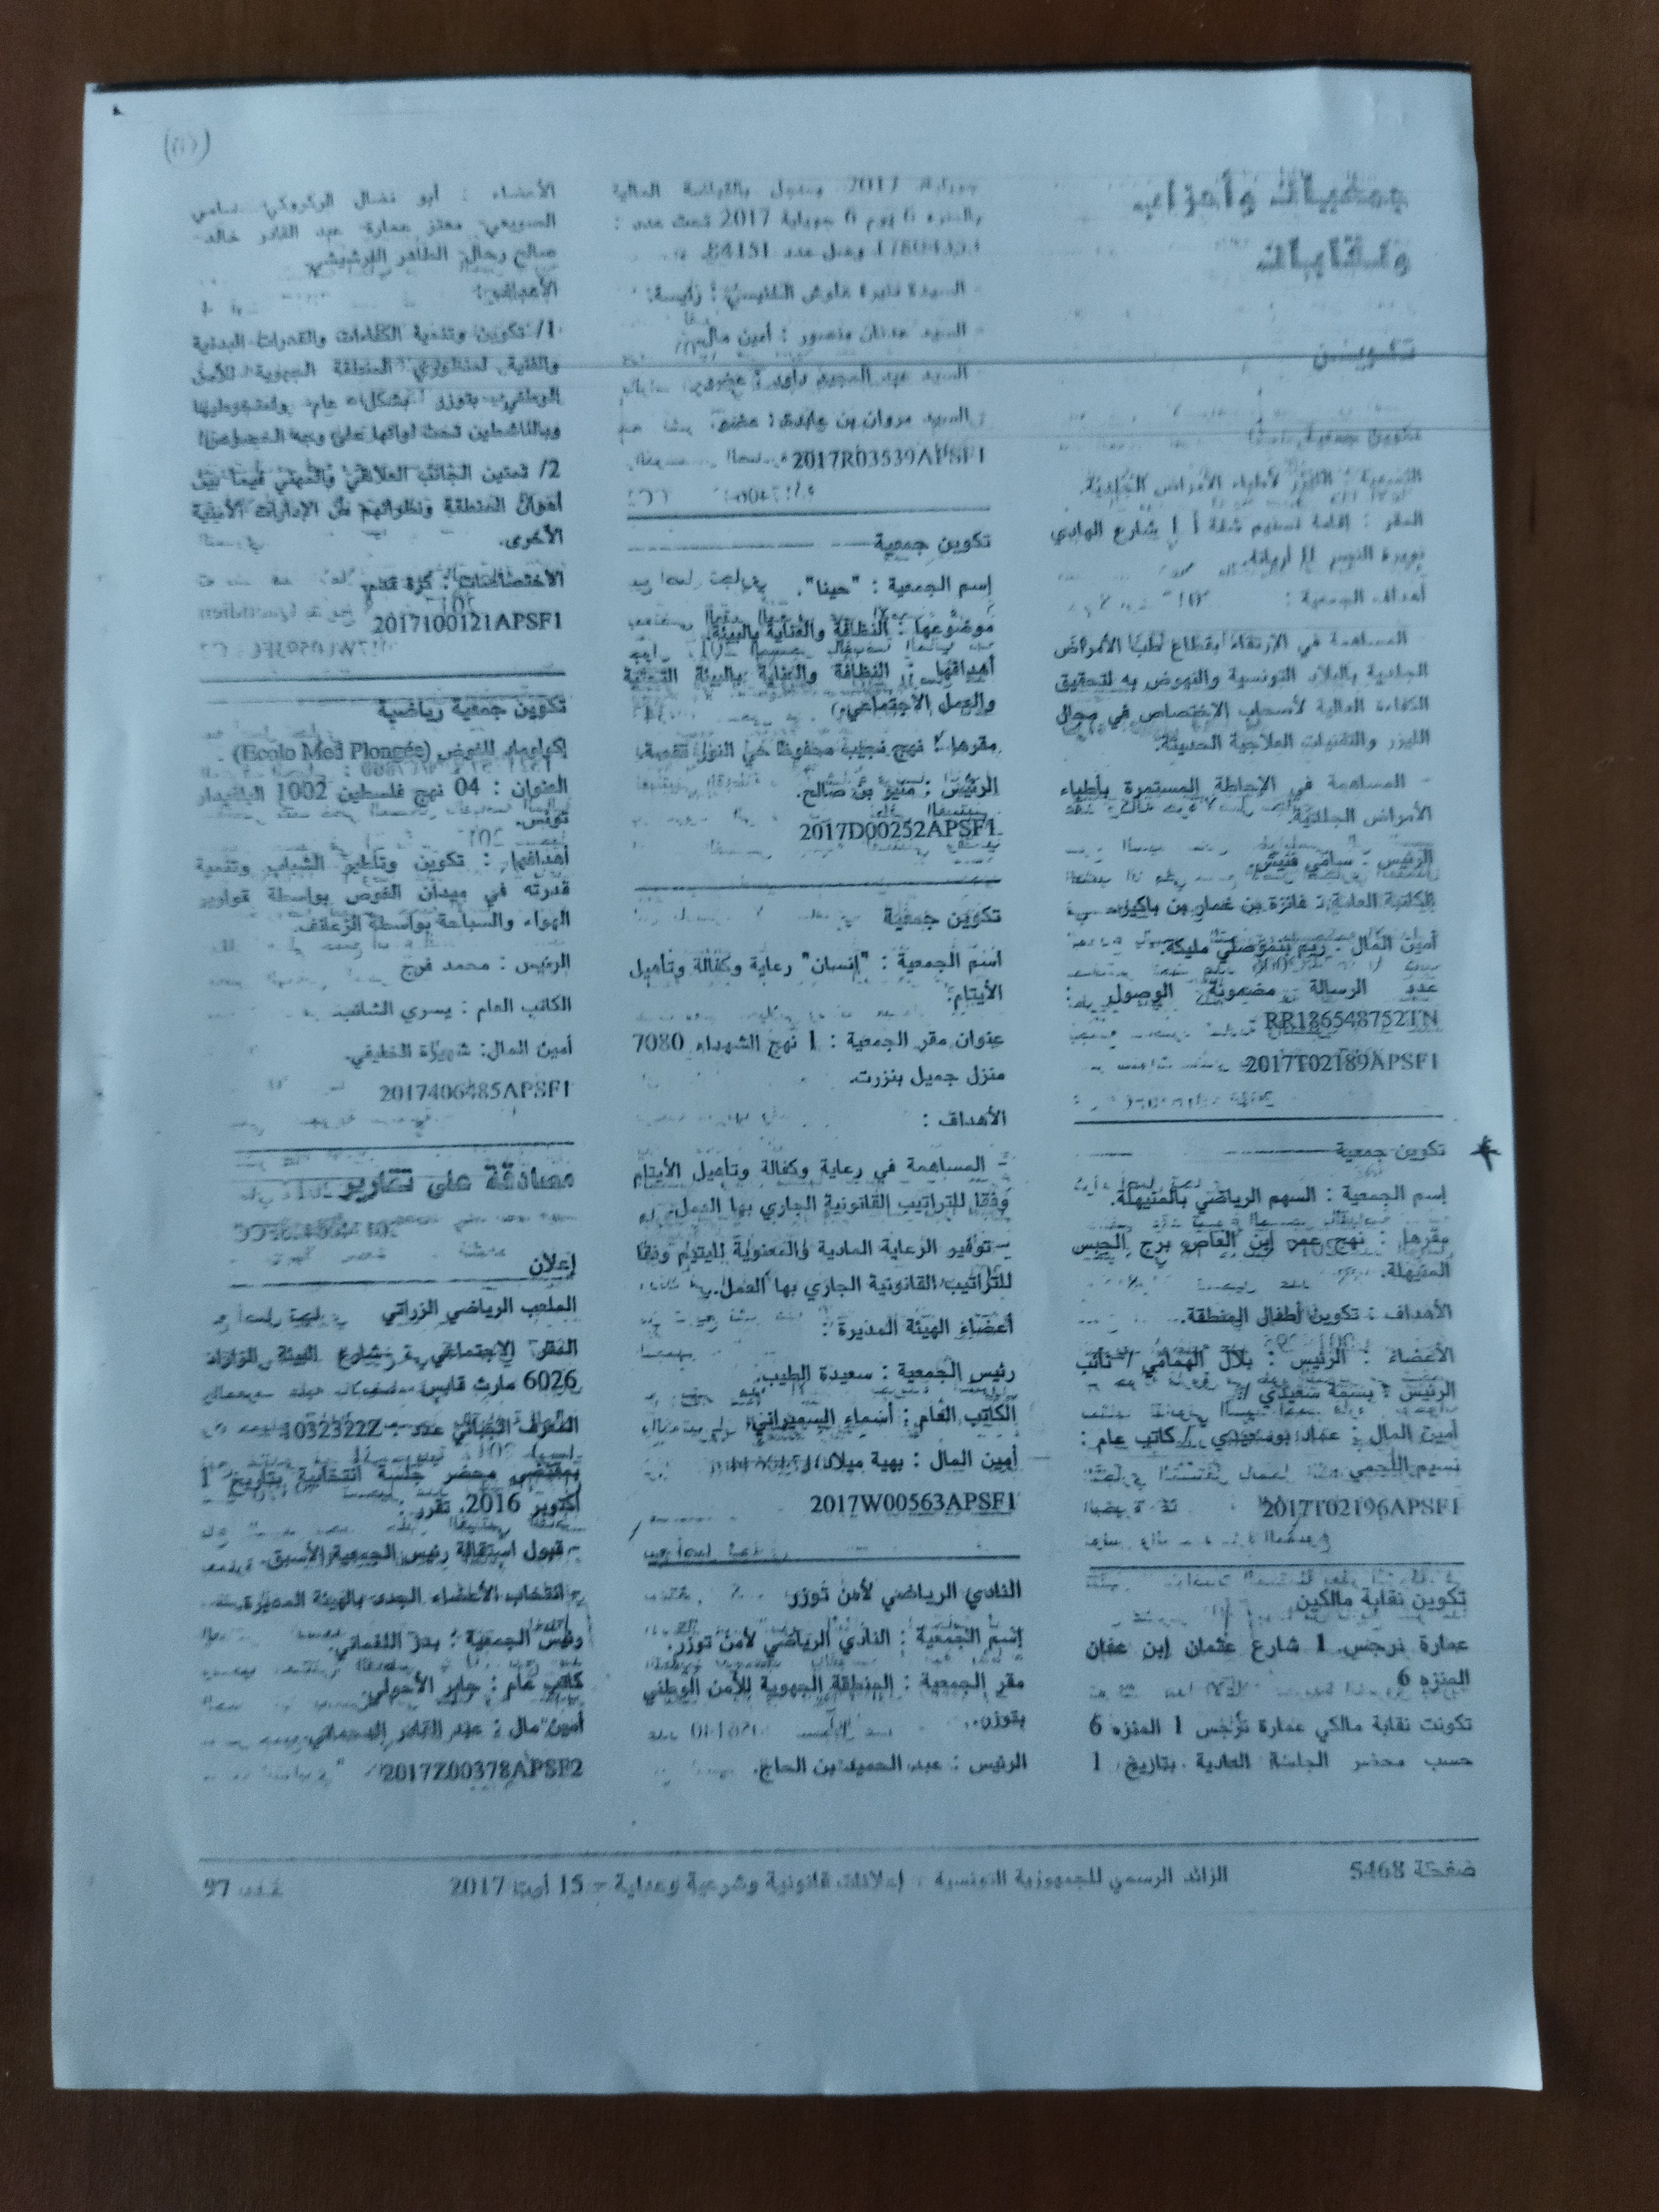 جمعيات وأحزاب
ونقابات
تكوين
تكوين جمعية
التسمية : الليزر لأطباء الأمراض الجلدية.
المقر : إقامة تسنيم شقة أ 1 شارع الهادي
نويرة النصر II أريانة.
أهداف الجمعية :
المساهمة في الإرتقاء بقطاع طب الأمراض
الجلدية بالبلاد التونسية والنهوض به لتحقيق
الكفاءة العالية لأصحاب الإختصاص في مجال
الليزر والتقنيات العلاجية الحديثة.
- المساهمة في الإحاطة المستمرة بأطباء
الأمراض الجلدية.
الرئيس : سامي فنيش.
الكاتبة العامة : فائزة بن عمار بن باكير.
أمين المال : ريم بنموصلي مليكة.
عدد الرسالة مضمونة الوصول :
RR186548752TN
2017T02189APSF1
تكوين جمعية
إسم الجمعية : السهم الرياضي بالمنيهلة.
مقرها : نهج عمر ابن العاص برج الحبس
المنيهلة.
الأهداف : تكوين أطفال المنطقة.
الأعضاء : الرئيس : بلال الهمامي / نائب
الرئيس : بسمة سعيدي /
أمين المال : عماد بوسعيدي / كاتب عام :
نسيم اللجمي
2017T02196APSF1
تكوين نقابة مالكين
عمارة نرجس 1 شارع عثمان إبن عفان
المنزه 6
تكونت نقابة مالكي عمارة نرجس 1 المنزه 6
حسب محضر الجلسة العادية بتاريخ 1
جويلية 2017 مسجل بالقباضة المالية
بالمنزه 6 يوم 6 جويلية 2017 تحت عدد :
17804353 وصل عدد 84151.
السيدة منيرة النفيسي : رئيسة.
السيد عدنان منصور : أمين مال.
السيد عبد المجيد داود : عضو.
السيد مروان بن عايدة : عضو.
2017R03539APSF1
تكوين جمعية
إسم الجمعية : "حينا".
موضوعها : النظافة والعناية بالبيئة.
أهدافها : النظافة والعناية بالبيئة
والعمل الاجتماعي.
مقرها : نهج نجيب محفوظ حي النور
الرئيس : منير بن صالح.
2017D00252APSF1
تكوين جمعية
اسم الجمعية : "إنسان" رعاية وكفالة وتأهيل
الأيتام.
عنوان مقر الجمعية : 1 نهج الشهداء 7080
منزل جميل بنزرت.
الأهداف :
- المساهمة في رعاية وكفالة وتأهيل الأيتام
وفقا للتراتيب القانونية الجاري بها العمل.
- توفير الرعاية المادية والمعنوية لليتيم وفقا
للتراتيب القانونية الجاري بها العمل.
أعضاء الهيئة المديرة :
رئيس الجمعية : سعيدة الطيب.
الكاتب العام : أسماء السميراني.
أمين المال : بهية ميلاد.
2017W00563APSF1
النادي الرياضي لأمن توزر
إسم الجمعية : النادي الرياضي لأمن توزر.
مقر الجمعية : المنطقة الجهوية للأمن الوطني
بتوزر.
الرئيس : عبد الحميد بن الحاج.
الأعضاء : أبو نضال سامي
معتز عمارة عبد القادر خالد
صالح رحال الطاهر القرشيشي.
الأهداف :
1/ تكوين وتنمية الكفاءات والقدرات البدنية
والفنية لمنظوري المنطقة الجهوية للأمن
الوطني بتوزر بشكل عام ولمنخرطيها
وبالناشطين تحت لوائها على وجه الخصوص.
2/ تمتين الجانب العلائقي والمهني فيما بين
أعوان المنطقة ونظرائهم من الإدارات الأمنية
الأخرى.
الاختصاصات : كرة قدم.
2017100121APSF1
تكوين جمعية رياضية
إكولوماد للغوص (Ecolo Med Plongée)
العنوان : 04 نهج فلسطين 1002 البلفيدار
تونس.
أهدافها : تكوين وتأطير الشباب وتنمية
قدرته في ميدان الغوص بواسطة قوارير
الهواء والسباحة بواسطة الزعانف.
الرئيس : محمد فرج
الكاتب العام : يسري الشائب
أمين المال: شهيرة الخليفي.
2017406485APSF1
مصادقة على تقارير
إعلان
الملعب الرياضي الزراتي
المقر الاجتماعي : شارع البيئة الزارات
6026 مارث قابس
المعرف الجبائي عدد : 1032322Z
بمقتضى محضر جلسة انتخابية بتاريخ 1
أكتوبر 2016، تقرر :
- قبول استقالة رئيس الجمعية الأسبق.
- انتخاب الأعضاء الجدد بالهيئة المديرة.
رئيس الجمعية : بدر اللقماني.
كاتب عام : جابر الأحول.
أمين مال : عبد القادر
2017Z00378APSF2
صفحة 5468
الرائد الرسمي للجمهورية التونسية - إعلانات قانونية وشرعية وعدلية - 15 أوت 2017
عدد 97